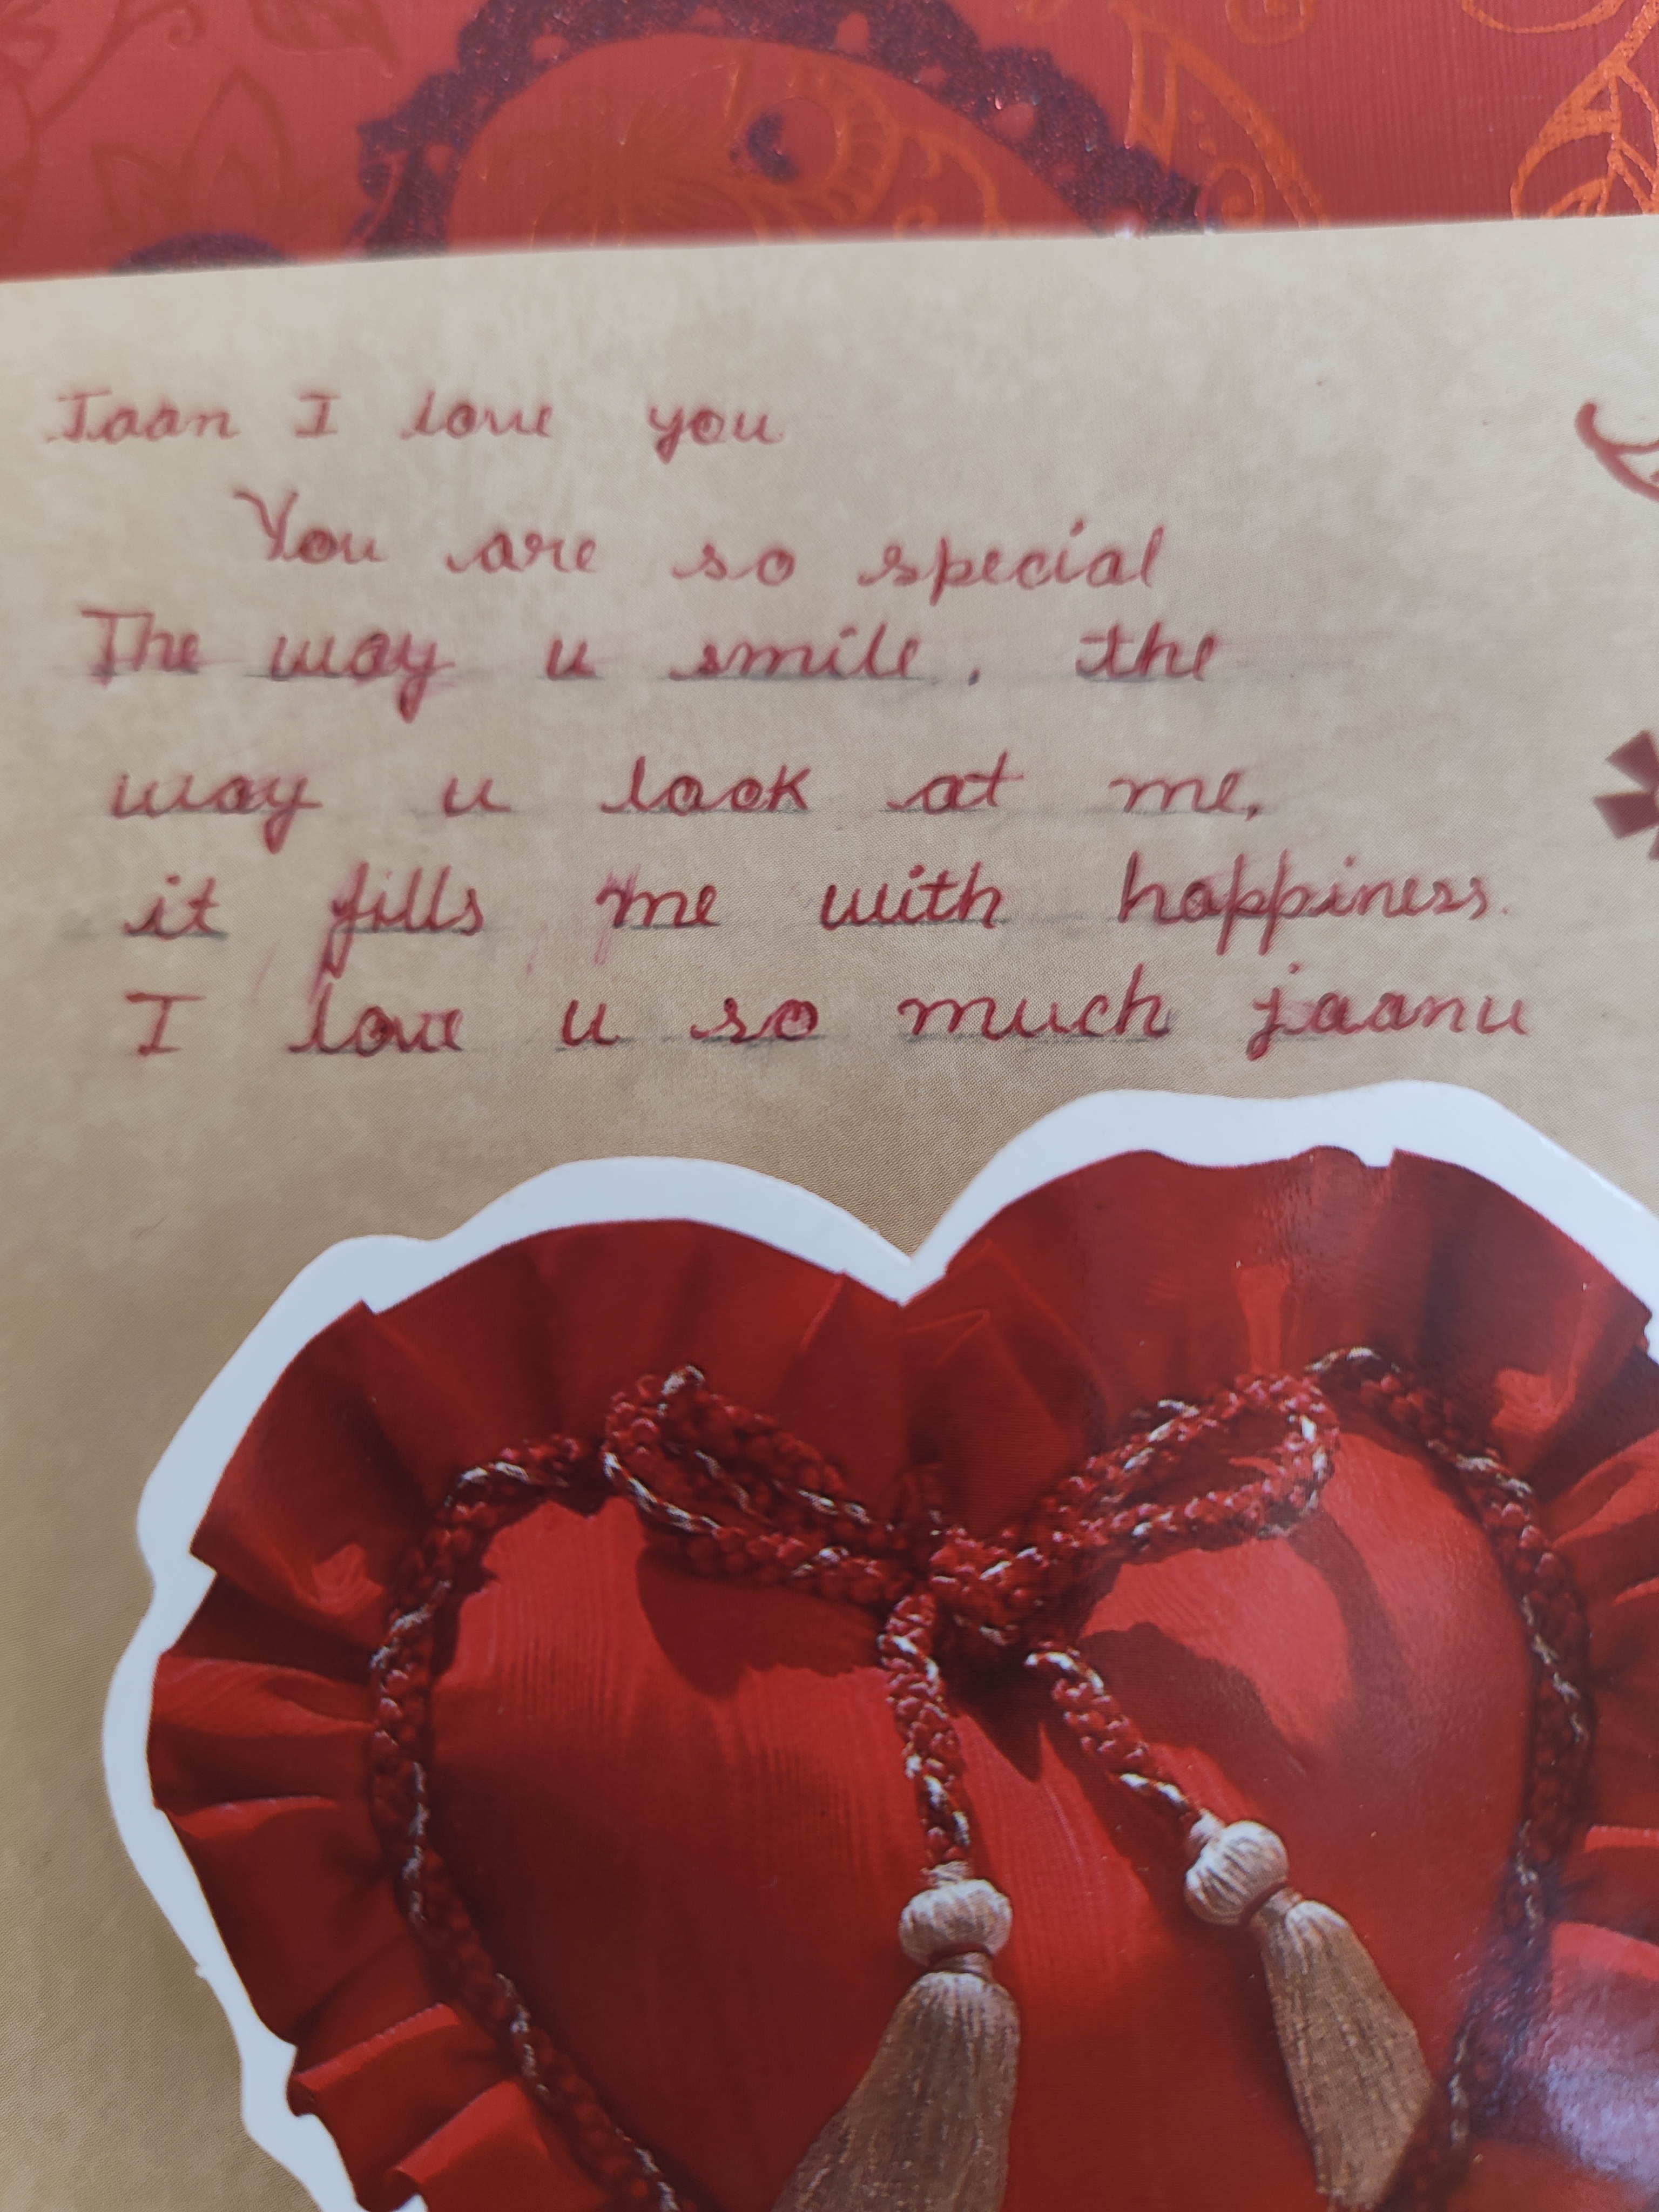 Jaan I love you
You are so special
The way u smile, the
way u look at me,
it fills me with happiness.
I love u so much jaanu